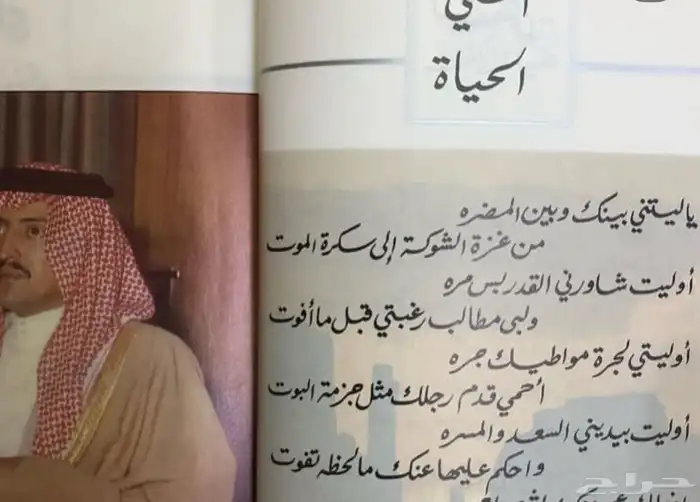 الحياة
ياليتني بينك وبين المضره
من غزة الشوكة إلى سكرة الموت
أوليت شاورني القدر بس مره
ولبى مطالب رغبتي قبل ما أفوت
أوليتي لجرة مواطيك جره
أحمي قدم رجلك مثل جزمة البوت
أوليت بيديني السعد والمسره
واحكم عليها عنك ما لحظه تفوت
حراج